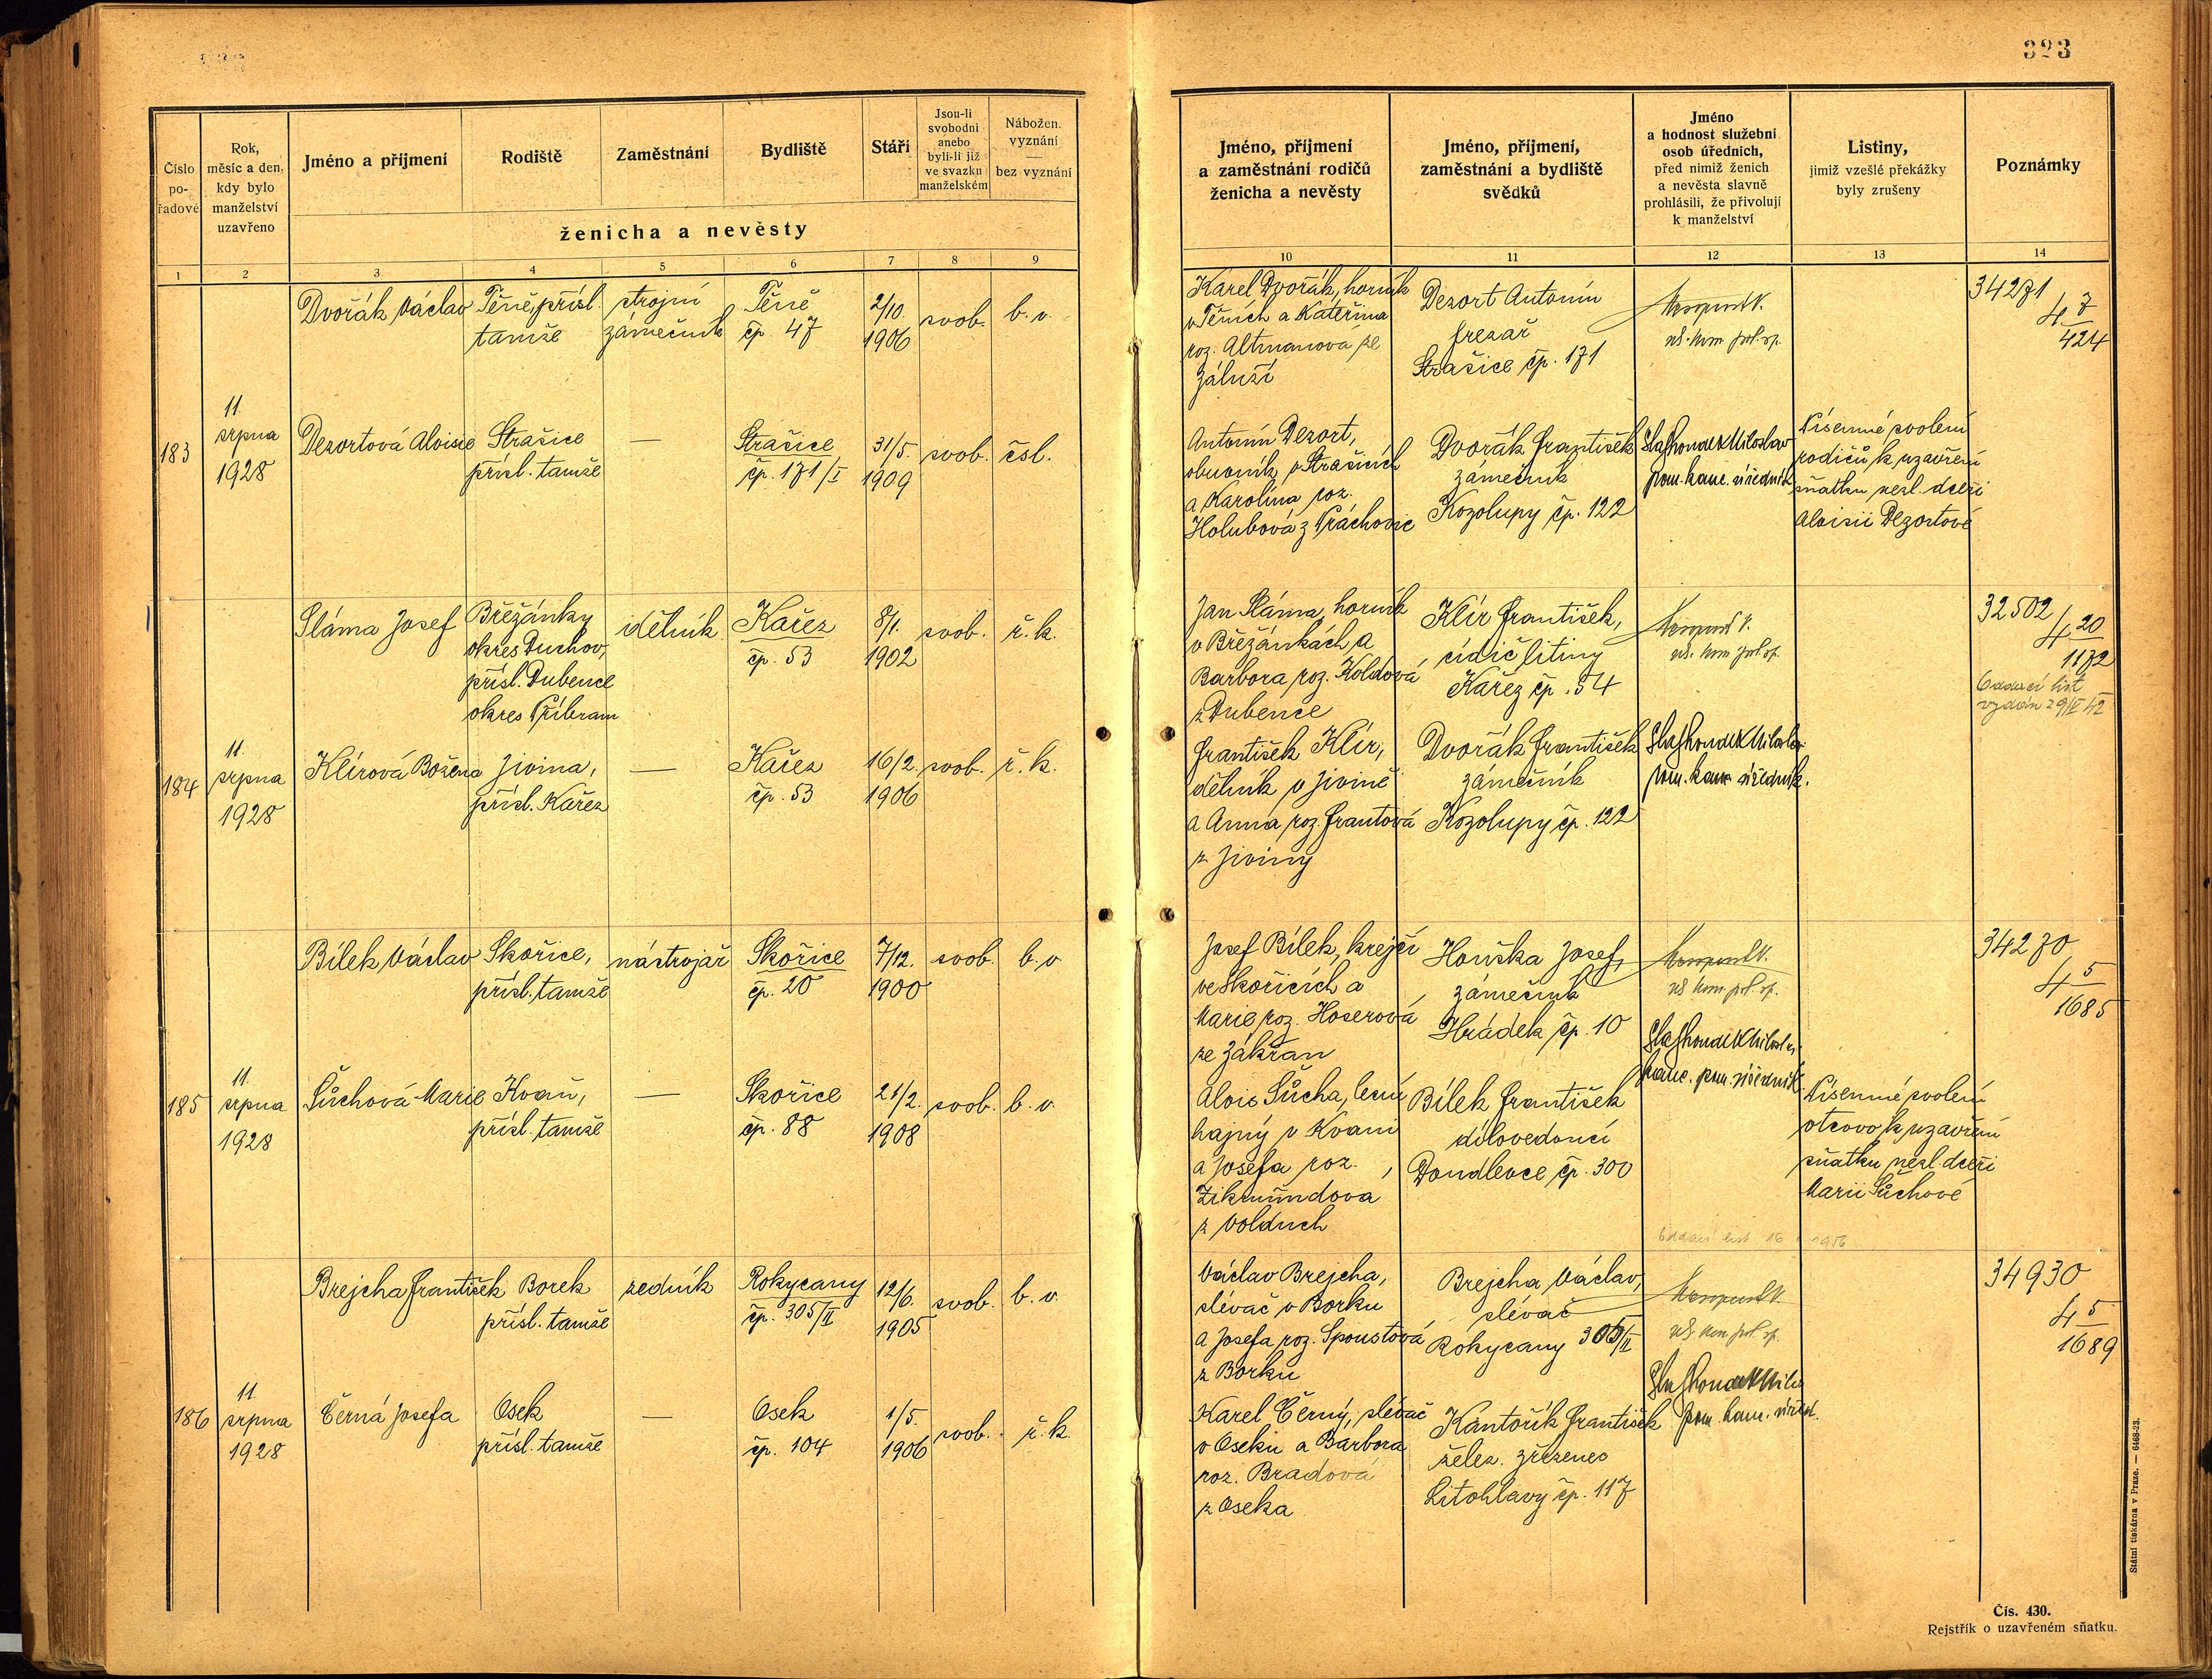 323
Číslo
po-
řadové
Rok,
měsíc a den,
kdy bylo
manželství
uzavřeno
Jméno a příjmení
Rodiště
Zaměstnání
Bydliště
Stáří
Jsou-li
svobodni
anebo
byli-li již
ve svazku
manželském
Nábožen.
vyznání
—
bez vyznání
ženicha a nevěsty
1 2 3 4 5 6 7 8 9
Dvořák Václav
Těně, přísl.
tamže
strojní
zámečník
Těně
čp. 47
2/10.
1906
svob.
b. v.
183
11.
srpna
1928
Dezortová Aloisie
Strašice
přísl. tamže
—
Strašice
čp. 171/I
31/5.
1909
svob.
čsl.
Sláma Josef
Břežánky
okres Duchov,
přísl. Dubence
okres Příbram
dělník
Kařez
čp. 53
8/1.
1902
svob.
ř. k.
184
11.
srpna
1928
Klírová Božena
Jivina,
přísl. Kařez
—
Kařez
čp. 53
16/2.
1906
svob.
ř. k.
Bílek Václav
Skořice,
přísl. tamže
nástrojař
Skořice
čp. 20
7/12.
1900
svob.
b. v
185
11.
srpna
1928
Šůchová Marie
Kvaň,
přísl. tamže
—
Skořice
čp. 88
21/2.
1908
svob.
b. v.
Brejcha František
Borek
přísl. tamže
zedník
Rokycany
čp. 305/II
12/6.
1905
svob.
b. v.
186
11.
srpna
1928
Černá Josefa
Osek
přísl. tamže
—
Osek
čp. 104
1/5.
1906
svob.
ř. k.
Jméno, příjmení
a zaměstnání rodičů
ženicha a nevěsty
Jméno, příjmení,
zaměstnání a bydliště
svědků
Jméno
a hodnost služební
osob úředních,
před nimiž ženich
a nevěsta slavně
prohlásili, že přivolují
k manželství
Listiny,
jimiž vzešlé překážky
byly zrušeny
Poznámky
10 11 12 13 14
Karel Dvořák, horník
v Těních a Kateřina
roz. Altmanová ze
Záluží
Dezort Antonín
frezař
Strašice čp. 171
34271
4 7
424
Antonín Dezort,
obuvník v Strašicích
a Karolína roz.
Holubová z Práchovic
Dvořák František
zámečník
Kozolupy čp. 122
Miloslav
pom. kanc. úředník
Písemné svolení
rodičů k uzavření
sňatku nezl. dceři
Aloisii Dezortové
Jan Sláma, horník
v Břežánkách a
Barbora roz. Koldová
z Dubence
Klír František,
cídič litiny
Kařez čp. 54
32502
4 20
1172
Oddací list
vydán
František Klír,
dělník v Jivině
a Anna roz. Frantová
z Jiviny
Dvořák František
zámečník
Kozolupy čp. 122
pom. kanc. úředník.
Josef Bílek, krejčí
ve Skořicích a
Marie roz. Hoserová
ze Zákřan
Houška Josef,
zámečník
Hrádek čp. 10
34270
4 5
1685
kanc. pom. úředník
Alois Šůcha, lesní
hajný v Kvani
a Josefa roz.
Zikmundová
z Volduch
Bílek František
dílovedoucí
Doudlevce čp. 300
Písemné svolení
otcovo k uzavření
sňatku nezl. dceři
Marii Šůchové
Oddací list 16 1956
Václav Brejcha,
slévač v Borku
a Josefa roz. Spoustová
z Borku
Brejcha Václav,
slévač
Rokycany 305/II
34930
4 5
1689
Karel Černý, slévač
v Oseku a Barbora
roz. Bradová
z Oseka
Kantořík František
želez. zřízenec
Litohlavy čp. 117
pom. kanc. úředn.
Státní tiskárna v Praze. — 6468-23.
Čís. 430.
Rejstřík o uzavřeném sňatku.